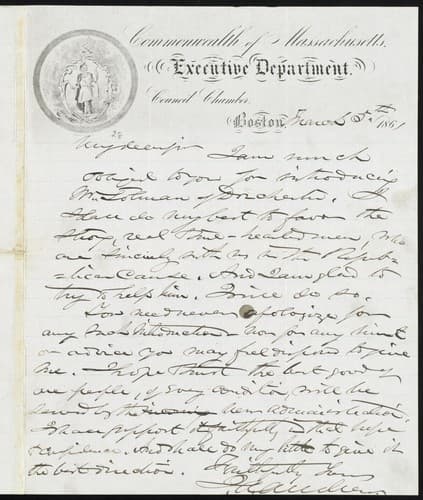 Commonwealth of Massachusetts.
Executive Department.
Council Chamber.
Boston, March 5th 1861
28
My dear sir
I am much
obliged to you for introducing
Mr Tolman of Dorchester. I
shall do my best to favor the
true-hearted men, who
are sincerely with us in the Repub-
lican cause. And I am glad to
try to help him. I will do so.
You need never apologize for
any such introduction nor for any hint
or advice you may feel disposed to give
me. I hope & trust the best good of
our people, of every condition, will be
served by the new administration.
I shall support it faithfully in that hope
& confidence. And shall do my to give it
the best direction.
Faithfully Yours
J A Andrew